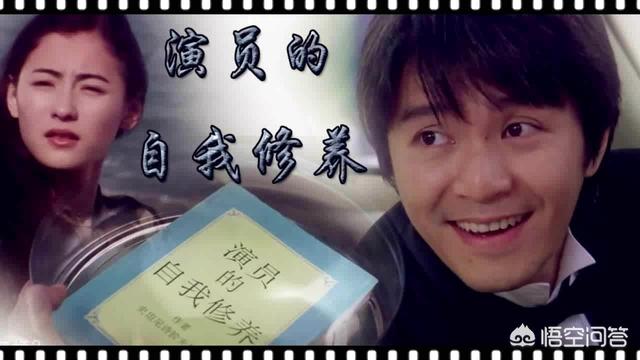 演员的
自我修养
演员
的
自我修养
作者
悟空问答